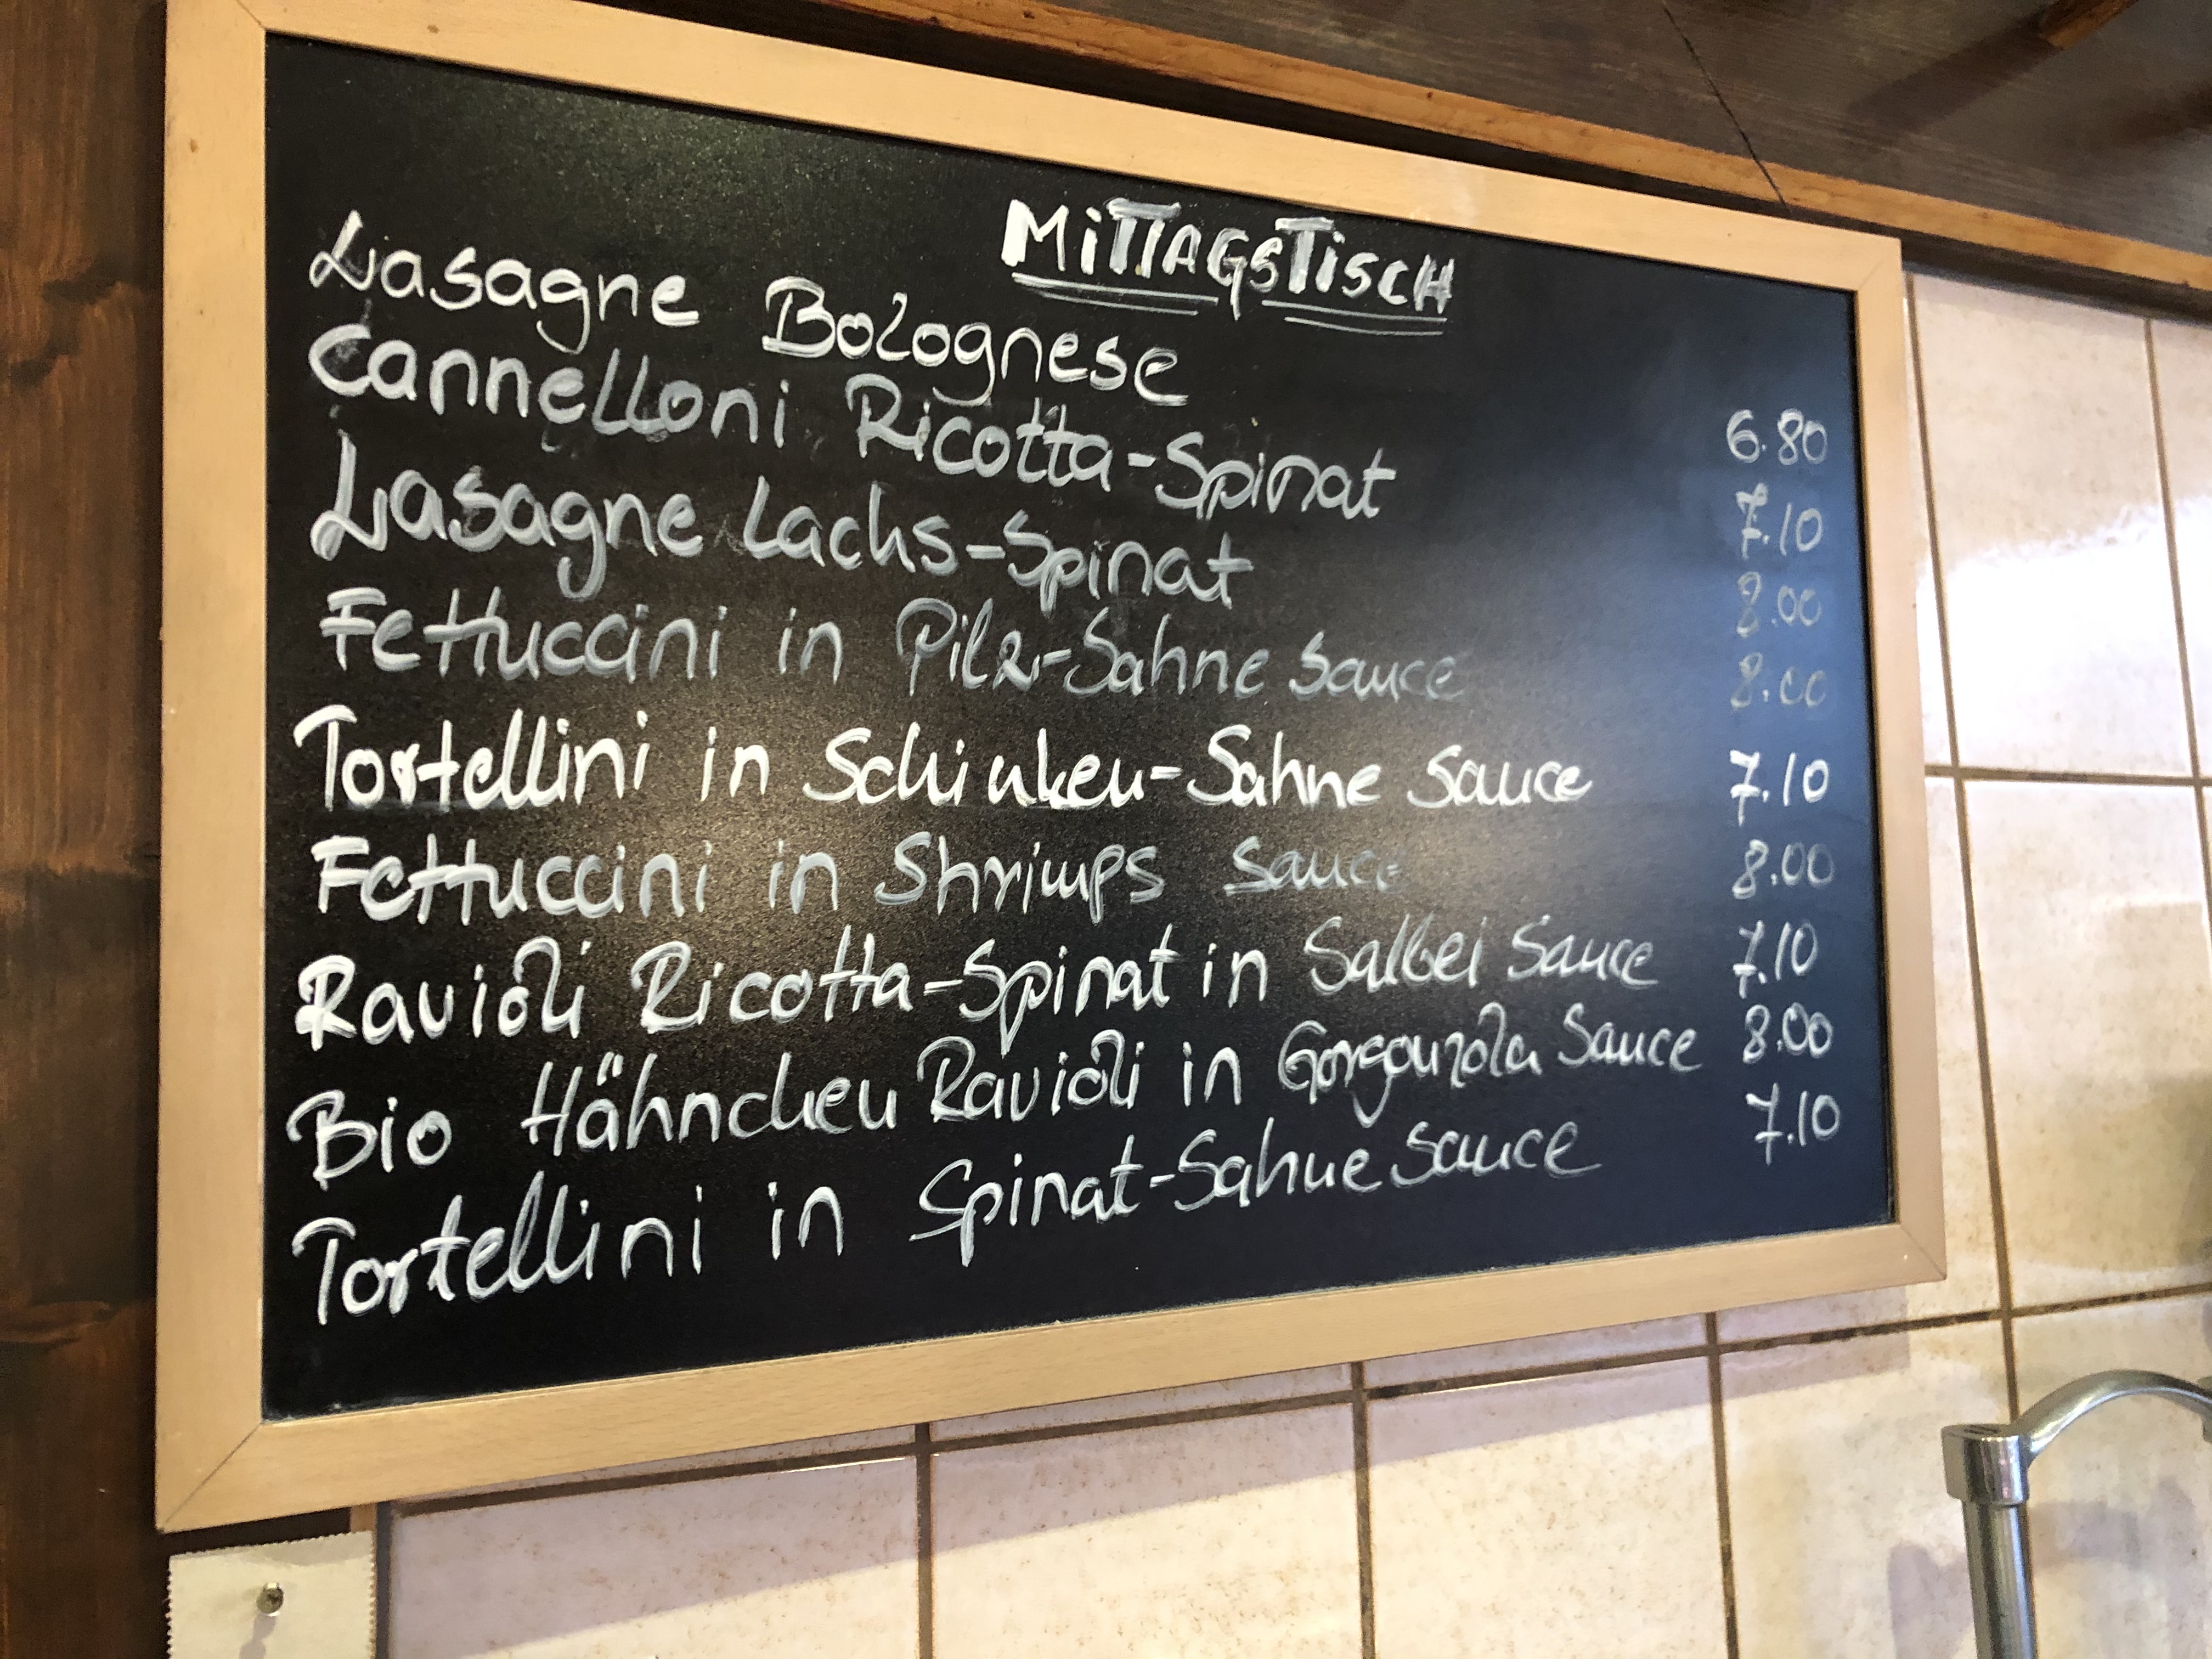 MITTAGSTISCH
Lasagne Bolognese 6.80
Cannelloni Ricotta-Spinat 7.10
Lasagne Lachs-Spinat 8.00
Fettuccini in Pilz-Sahne Sauce 8.00
Tortellini in Schinken-Sahne Sauce 7.10
Fettuccini in Shrimps Sauce 8.00
Ravioli Ricotta-Spinat in Salbei Sauce 7.10
Bio Hähnchen Ravioli in Gorgonzola Sauce 8.00
Tortellini in Spinat-Sahne Sauce 7.10